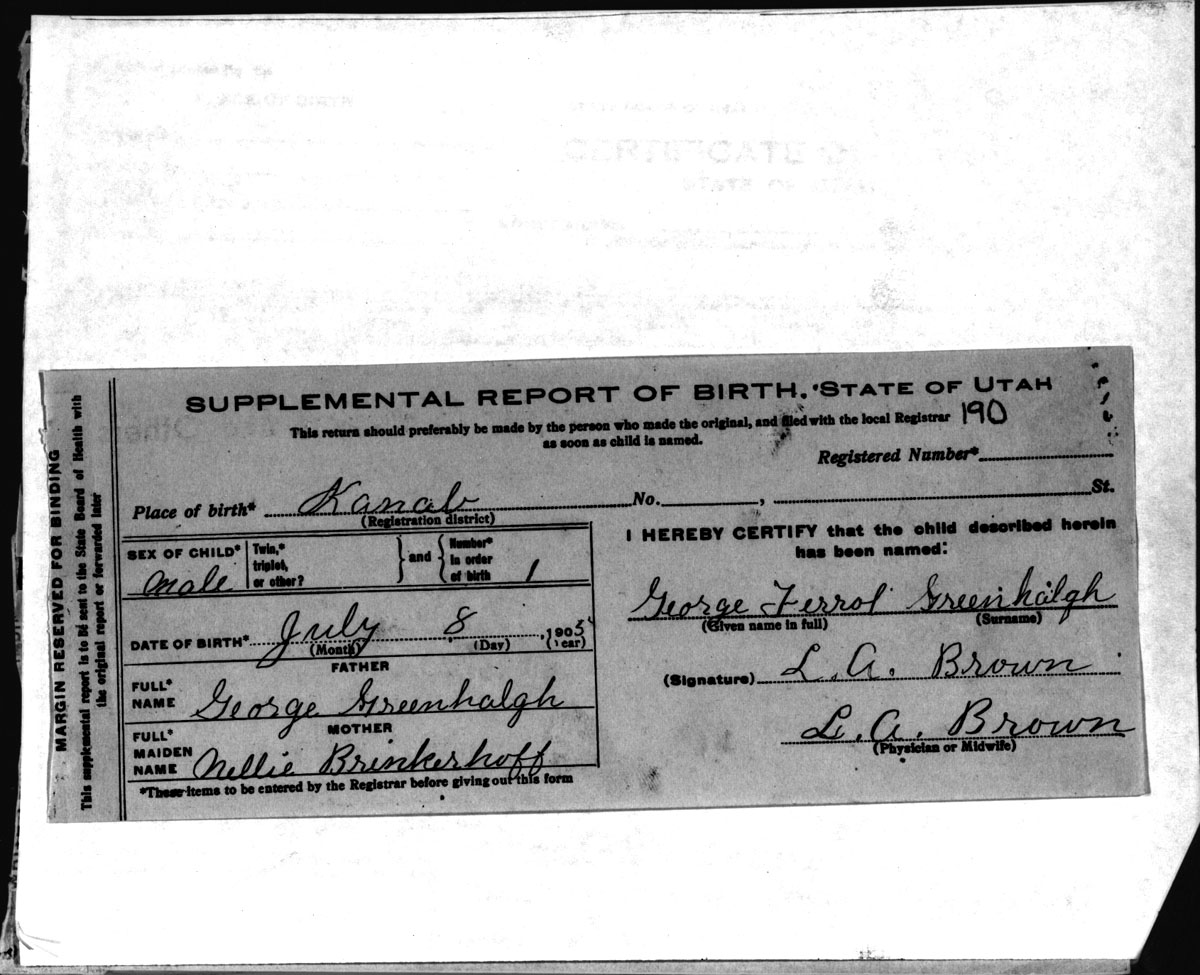 SUPPLEMENTAL REPORT OF BIRTH. STATE OF UTAH
This return should preferably be made by the person who made the original, and filed with the local Registrar 190
as soon as child is named.
Registered Number*
Place of birth* Kanab No. , St.
(Registration district)
SEX OF CHILD* Male
Twin,*
triplet,
or other?
} and {
Number*
in order
of birth 1
DATE OF BIRTH* July 8, 1905
(Month) (Day) (Year)
FATHER
FULL*
NAME George Greenhalgh
MOTHER
FULL*
MAIDEN
NAME Nellie Brinkerhoff
*These items to be entered by the Registrar before giving out this form
I HEREBY CERTIFY that the child described herein
has been named:
George Ferrol Greenhalgh
(Given name in full) (Surname)
(Signature) L. A. Brown
L. A. Brown
(Physician or Midwife)
MARGIN RESERVED FOR BINDING
This supplemental report is to be sent to the State Board of Health with
the original report or forwarded later
CERTIFICATE
STATE OF